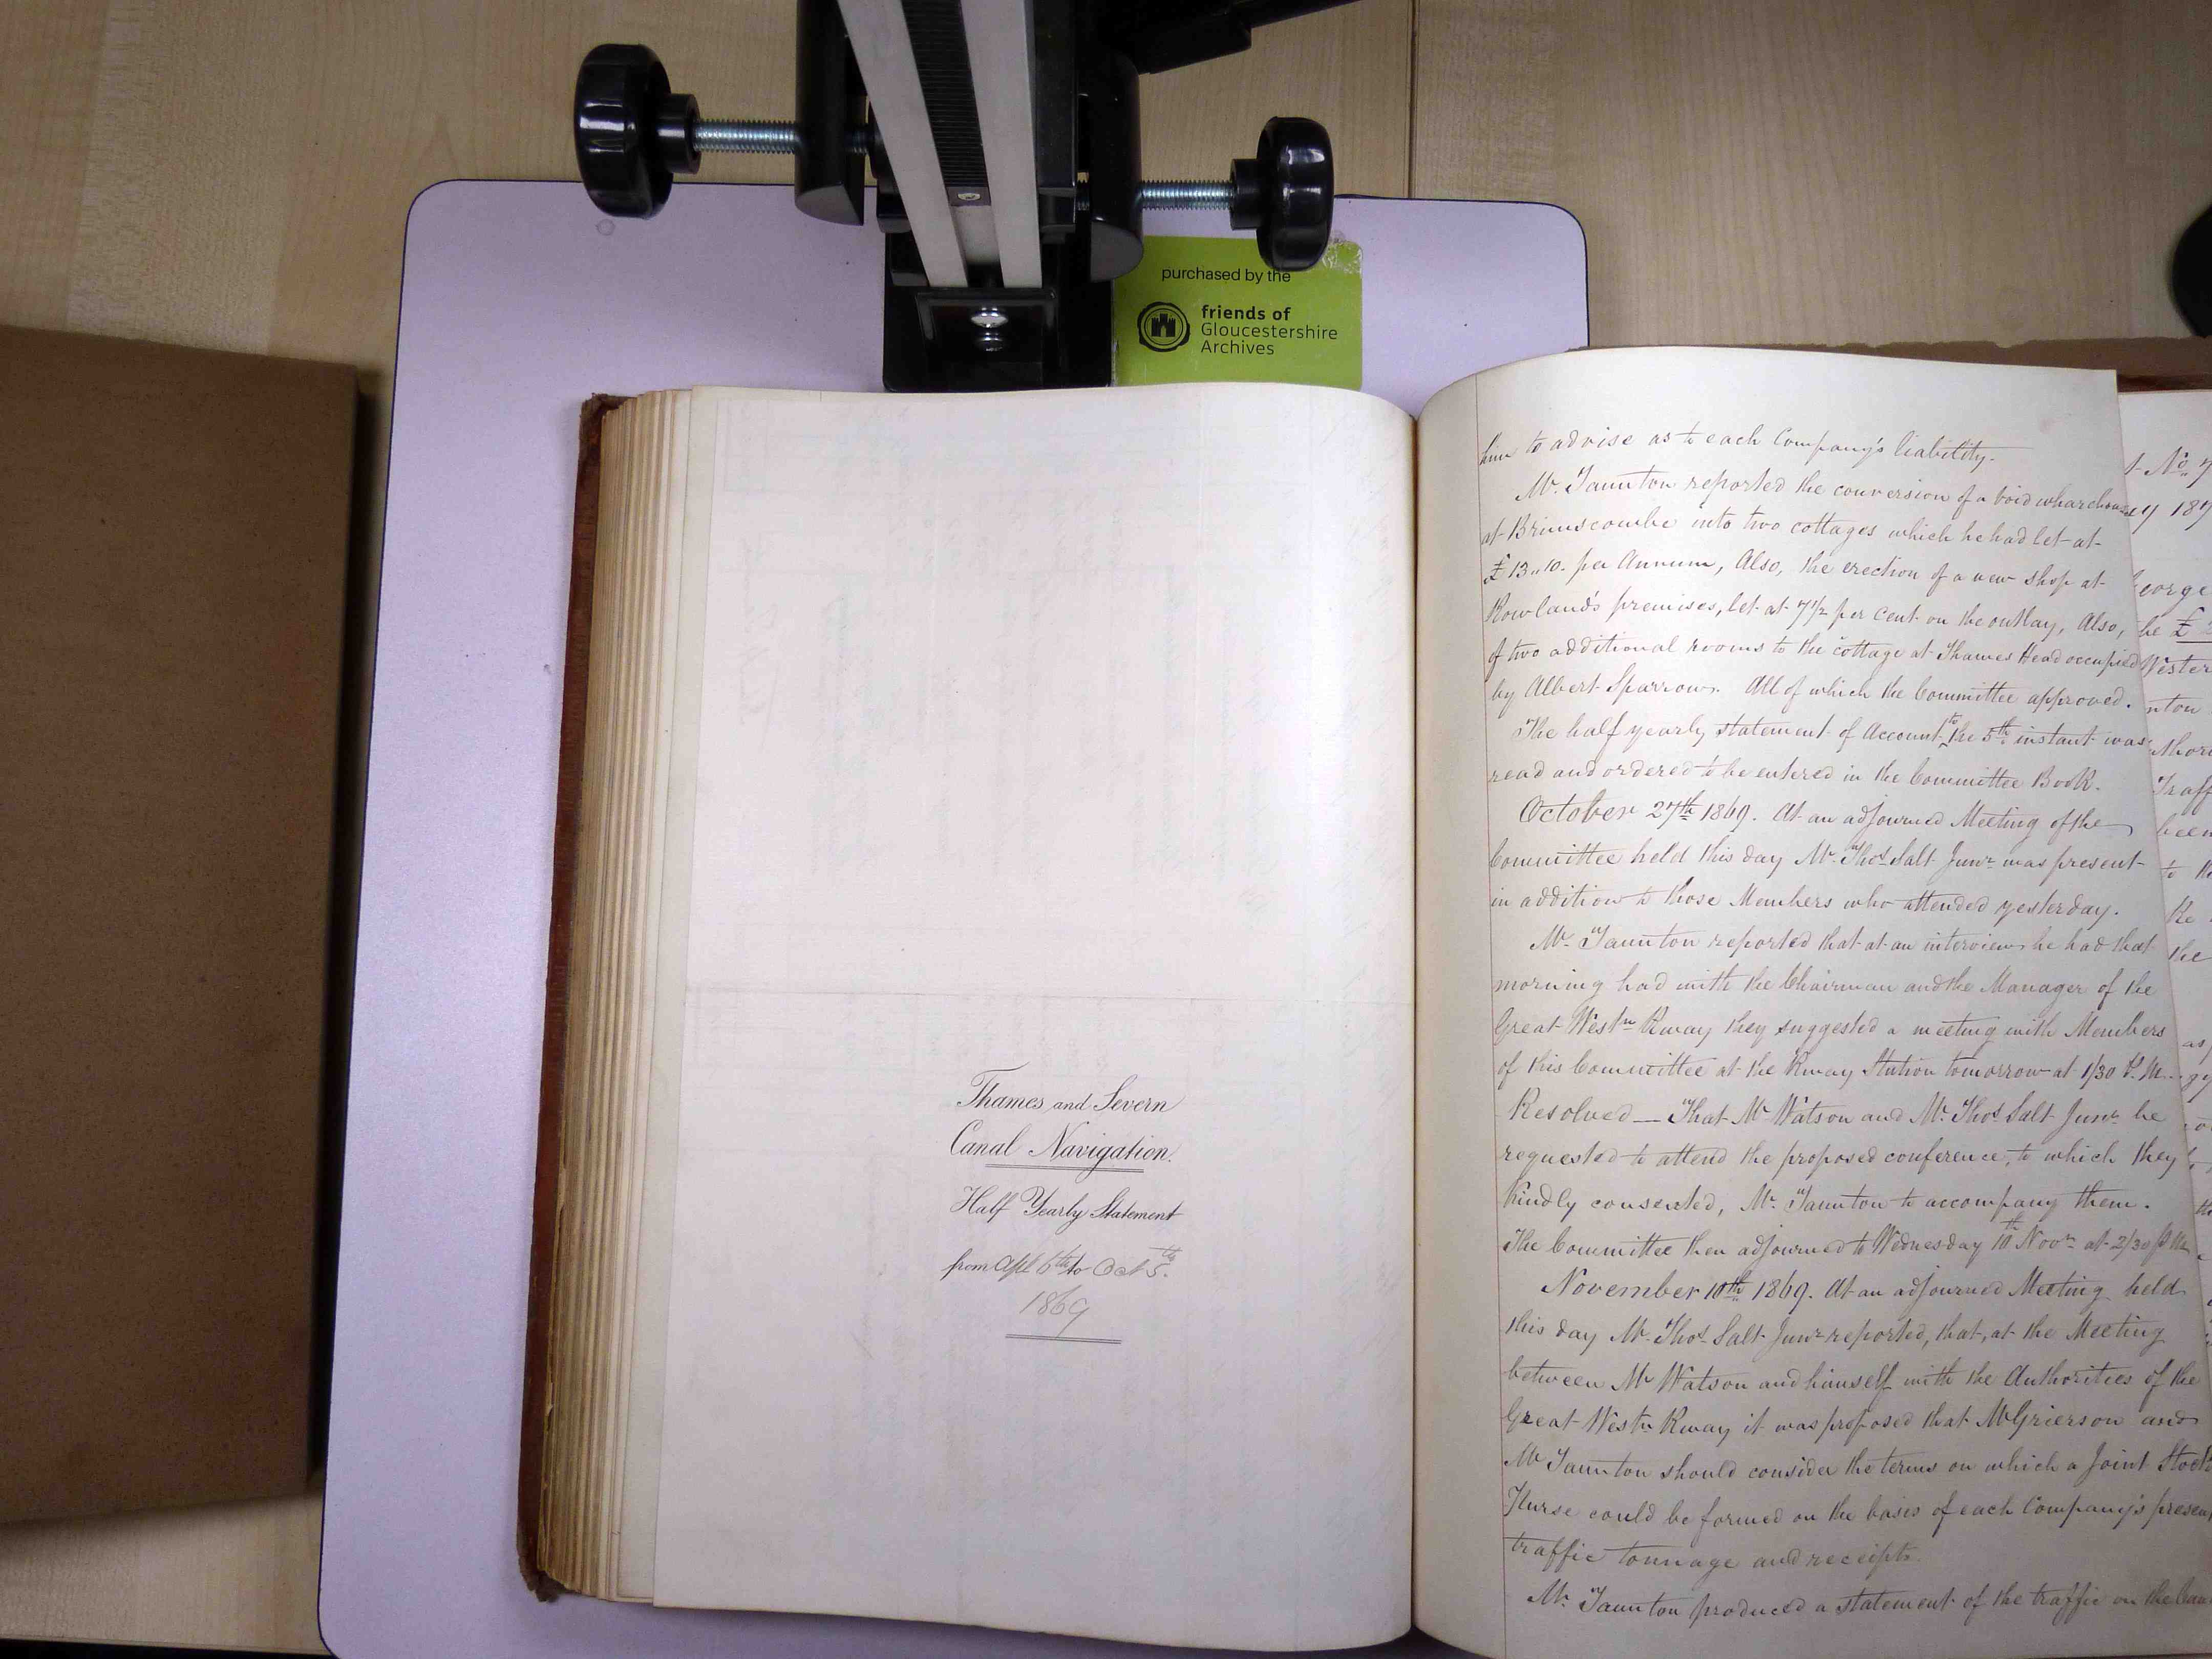 purchased by the
friends of
Gloucestershire
Archives
Thames and Severn
Canal Navigation.
Half Yearly Statement
from Apl 6th to Oct 5th
1869
him to advise as to each Company's liability.
Mr. Taunton reported the conversion of a void wharehouse
at Brimscombe into two cottages which he had let at
£13..10. per Annum, Also, the erection of a new shop at
Rowland's premises, let at 7½ per Cent on the outlay, Also,
of two additional rooms to the cottage at Thames Head occupied
by Albert Sparrow. All of which the Committee approved.
The half yearly statement of Account to the 5th instant was
read and ordered to be entered in the Committee Book.
October 27th 1869. At an adjourned Meeting of the
Committee held this day Mr. Thos. Salt Junr was present
in addition to those Members who attended yesterday.
Mr. Taunton reported that at an interview he had that
morning had with the Chairman and the Manager of the
Great Westn Rway they suggested a meeting with Members
of this Committee at the Rway Station tomorrow at 1/30 P.M.
Resolved — That Mr Watson and Mr. Thos. Salt Junr be
requested to attend the proposed conference, to which they
kindly consented, Mr. Taunton to accompany them.
The Committee then adjourned to Wednesday 10th Novr at 2/30 P.M.
November 10th 1869. At an adjourned Meeting held
this day Mr. Thos. Salt Junr reported, that, at the Meeting
between Mr Watson and himself with the Authorities of the
Great Westn Rway it was proposed that Mr Grierson and
Mr Taunton should consider the terms on which a Joint Stock
Purse could be formed on the basis of each Company's present
traffic tonnage and receipts.
Mr. Taunton produced a statement of the traffic on the Canal